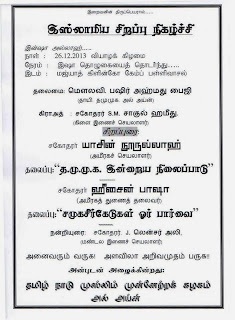 இறைவனின் திருப்பெயரால்.....
இஸ்லாமிய சிறப்பு நிகழ்ச்சி
இன்ஷா அல்லாஹ்.....
நாள் : 26.12.2013 வியாழக் கிழமை
நேரம் : இஷா தொழுகையைத் தொடர்ந்து.....
இடம் : மஜ்யாத் கிளின்கோ கேம்ப் பள்ளிவாசல்
தலைமை: மௌலவி. பஷீர் அஹ்மது பைஜி
(தாயி. த.மு.மு.க அல் அய்ன்)
கிராஅத் : சகோதரர் S.M. சாகுல் ஹமீது.
(கிளை இணைச் செயலாளர்)
சிறப்புரை:
சகோதரர் யாசின் நூருல்லாஹ்
(அமீரகச் செயலாளர்)
தலைப்பு: "த.மு.மு.க. இன்றைய நிலைப்பாடு"
சகோதரர் ஹீசைன் பாஷா
(அமீரகத் துணைத் தலைவர்)
தலைப்பு: "சமூகசீர்கேடுகள் ஓர் பார்வை"
நன்றியுரை: சகோதரர். J. லென்சர் அலி.
(மண்டல இணைச் செயலாளர்)
அனைவரும் வருக! அளவிலா அறிவமுதம் பருக!
அன்புடன் அழைக்கின்றது:
தமிழ் நாடு முஸ்லிம் முன்னேற்றக் கழகம்
அல் அய்ன்